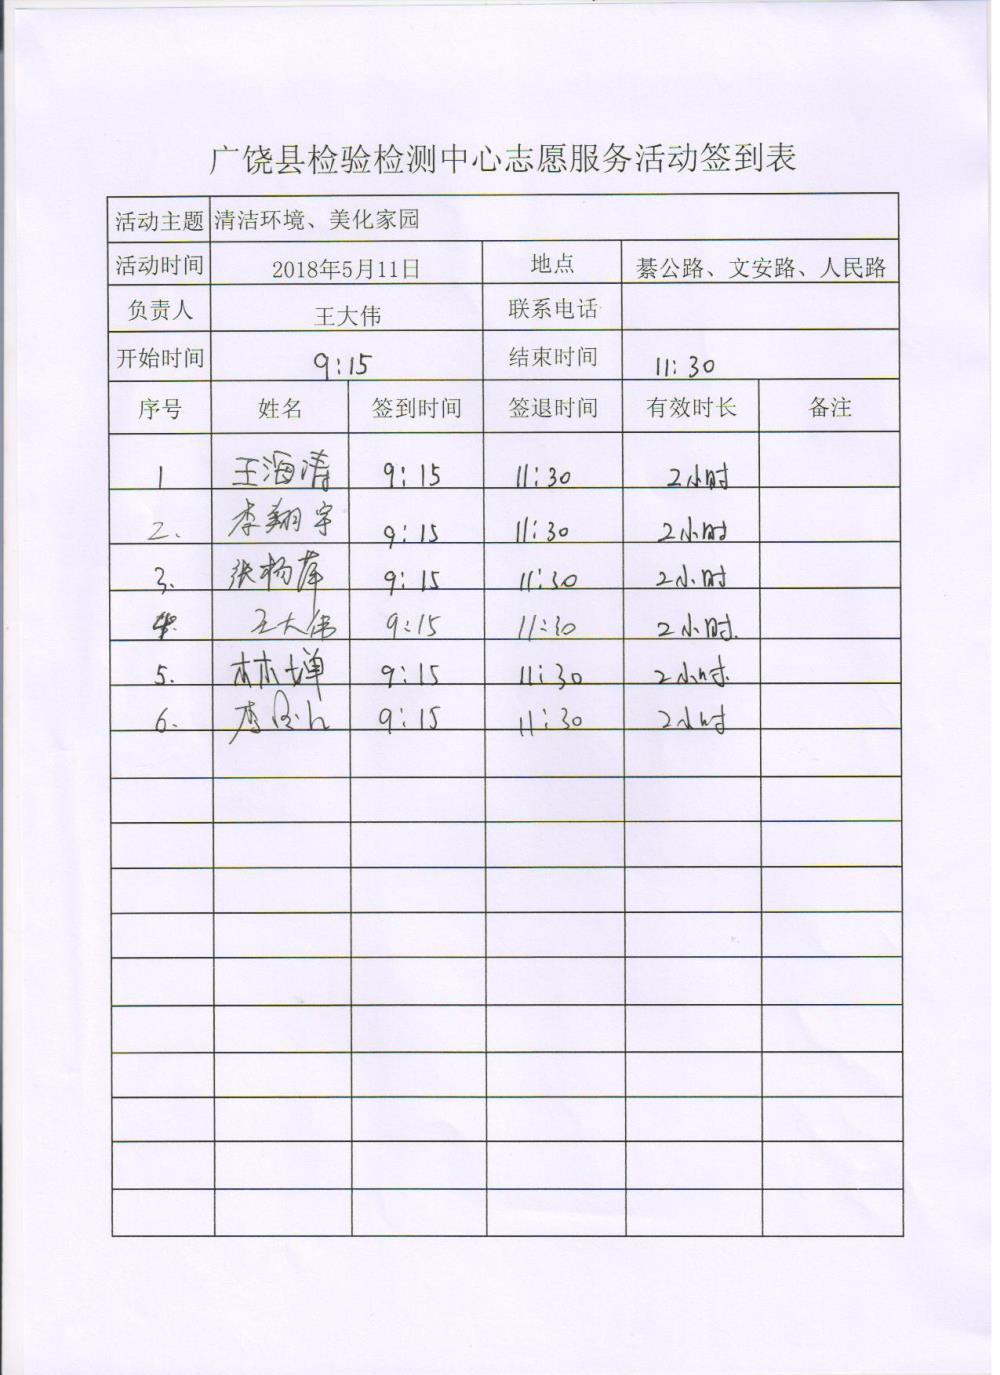 广饶县检验检测中心志愿服务活动签到表
活动主题 清洁环境、美化家园
活动时间 2018年5月11日 地点 綦公路、文安路、人民路
负责人 王大伟 联系电话
开始时间 9:15 结束时间 11:30
序号 姓名 签到时间 签退时间 有效时长 备注
1 王海涛 9:15 11:30 2小时
2. 李翔宇 9:15 11:30 2小时
3. 张杨萍 9:15 11:30 2小时
4. 王大伟 9:15 11:30 2小时.
5. 林婵 9:15 11:30 2小时.
6. 李 9:15 11:30 2小时